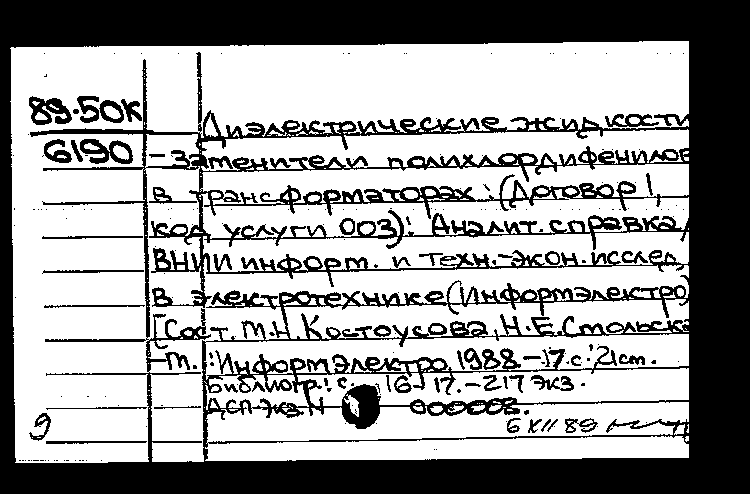 89-50К
6190
Диэлектрические жидкости
-заменители полихлордифенилов
в трансформаторах : (Договор 1,
код услуги 003): Аналит. справка /
ВНИИ информ. и техн.-экон. исслед.
в электротехнике (Информэлектро)
[Сост. М.Н. Костоусова, Н.Е. Стольска
-М. : Информэлектро, 1988. - 17 с.; 21 см.
Библиогр.: с. 16-17. - 217 экз.
ДСП-Экз. N 000008.
9
6 XII 89